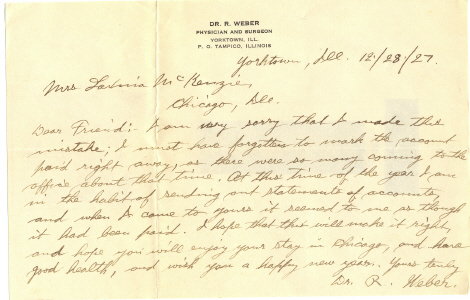 DR. R. WEBER
PHYSICIAN AND SURGEON
YORKTOWN, ILL.
P. O. TAMPICO, ILLINOIS
Yorktown, Ill. 12/28/27.
Mrs Lavinia McKenzie,
Chicago, Ill.
Dear Friend:- I am very sorry that I made this
mistake; I must have forgotten to mark the account
paid right away, as there were so many coming to the
office about that time. At this time of the year I am
in the habit of sending out statements of accounts,
and when I came to yours it seemed to me as though
it had been paid. I hope that this will make it right,
and hope you will enjoy your stay in Chicago, and have
good health, and wish you a happy new year. Yours truly
Dr. R. Weber.